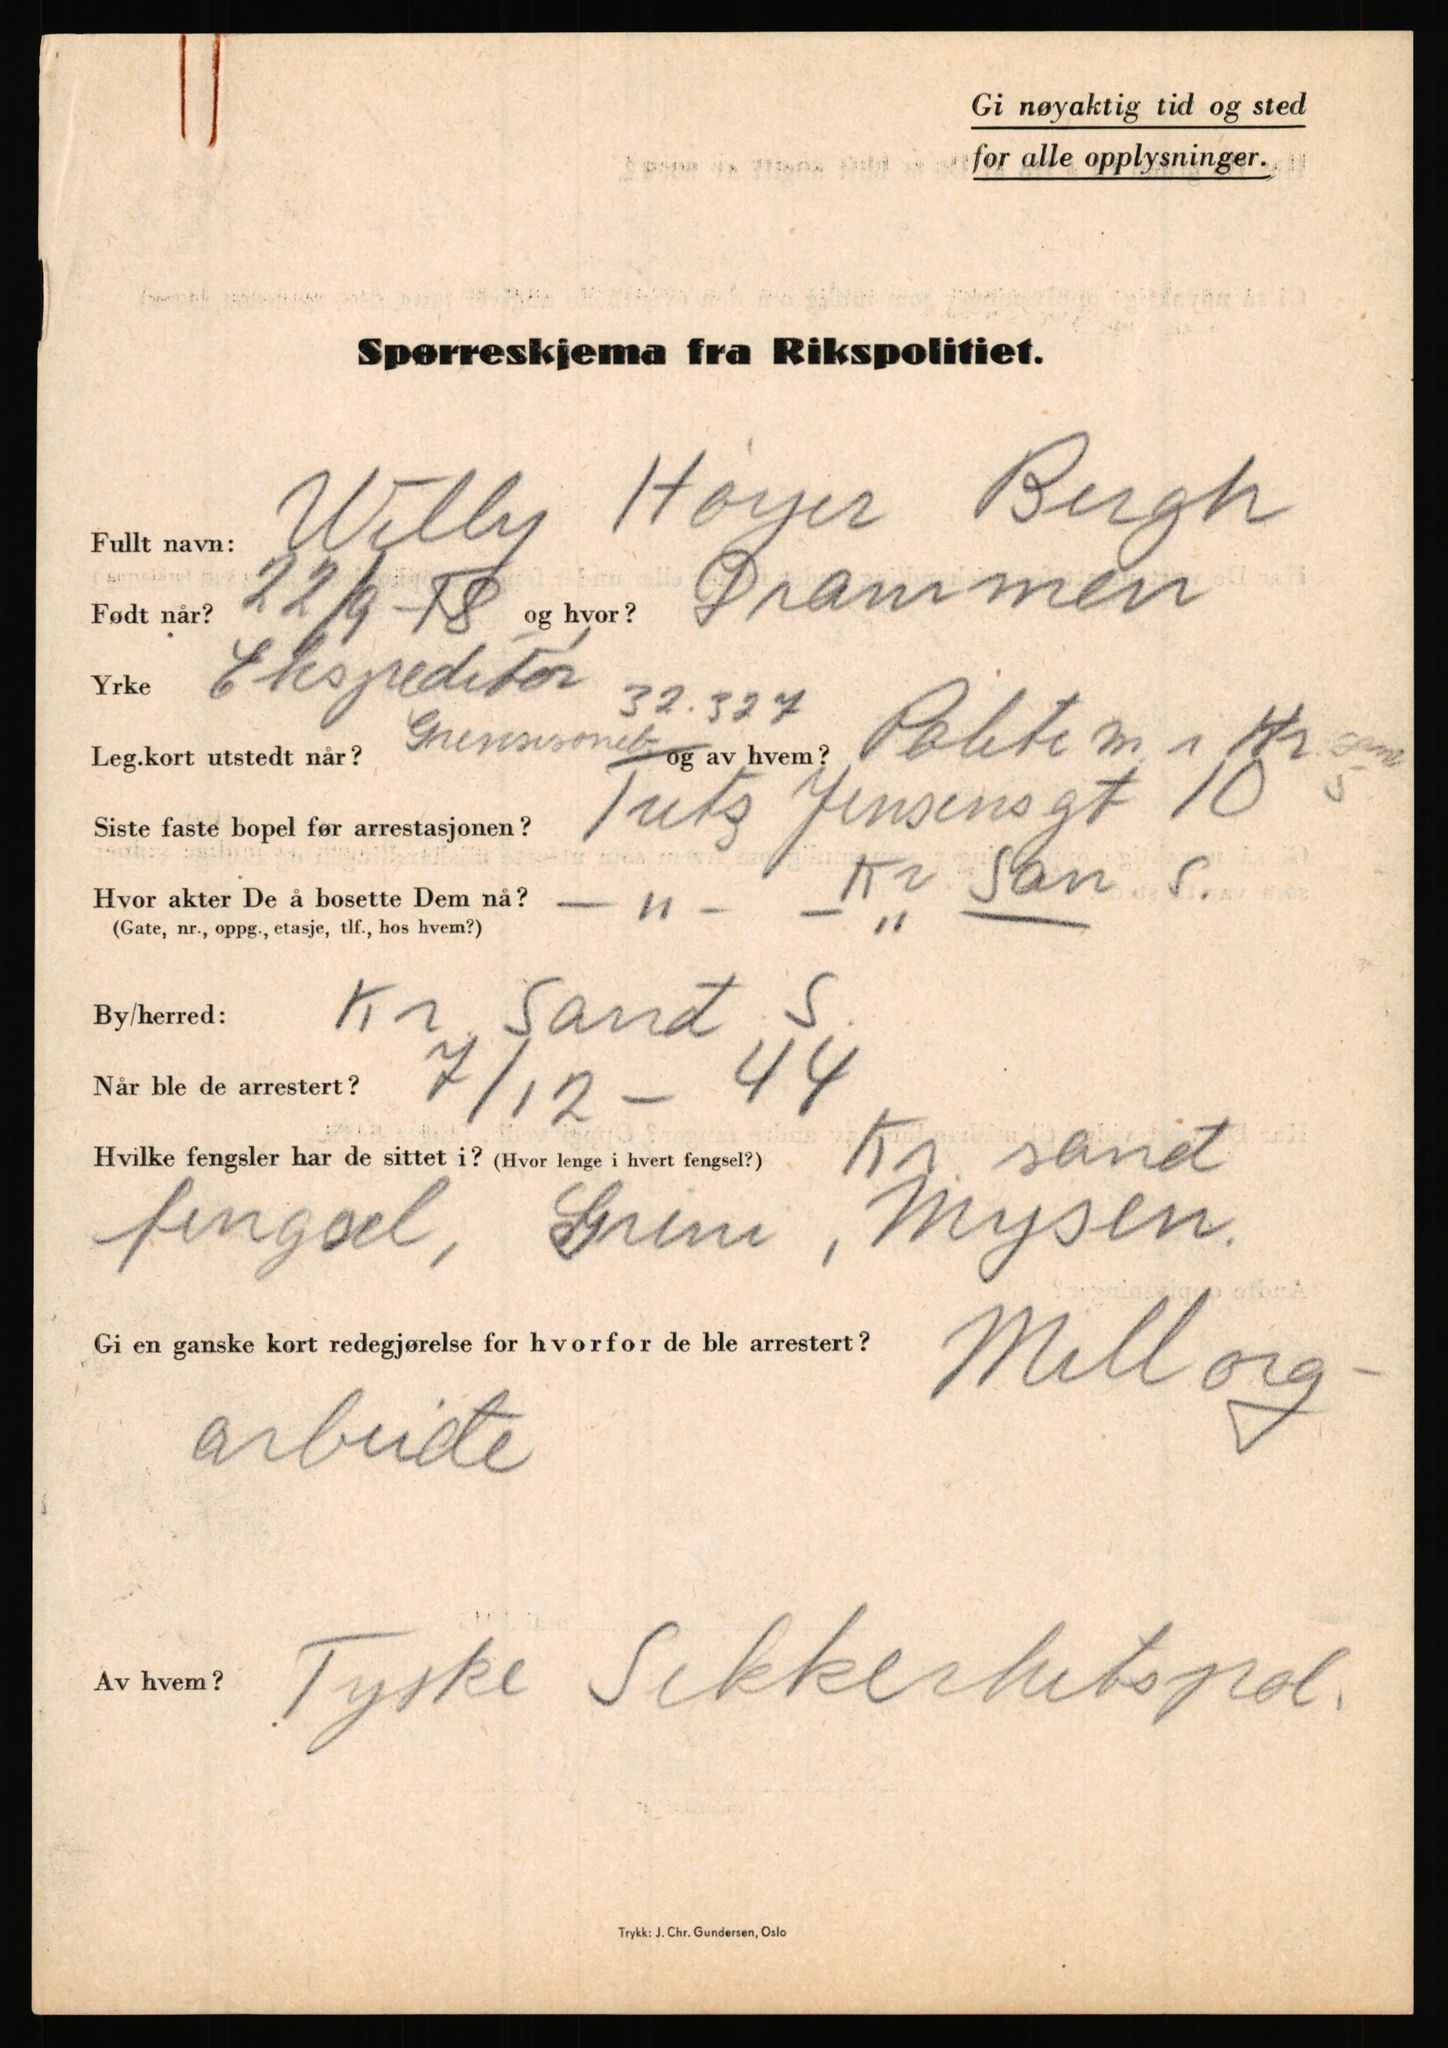 Gi nøyaktig tid og sted
for alle opplysninger.
Spørreskjema fra Rikspolitiet.
Fullt navn: Willy Høyer Bergh
Født når? 22/9-18 og hvor? Drammen
Yrke Ekspeditør
32.327
Leg.kort utstedt når? Grensesoneb og av hvem? Politi m i Kr. san S
Siste faste bopel før arrestasjonen? Jensensgt 10
Hvor akter De å bosette Dem nå? — " — — " Kr San S.
(Gate, nr., oppg., etasje, tlf., hos hvem?)
By/herred: Kr. Sand S.
Når ble de arrestert? 7/12 - 44
Hvilke fengsler har de sittet i? (Hvor lenge i hvert fengsel?) Kr. sand
fengsel, Grini, Mysen.
Gi en ganske kort redegjørelse for hvorfor de ble arrestert? Mill org-
arbeide
Av hvem? Tyske Sikkerhetspol.
Trykk: J. Chr. Gundersen, Oslo